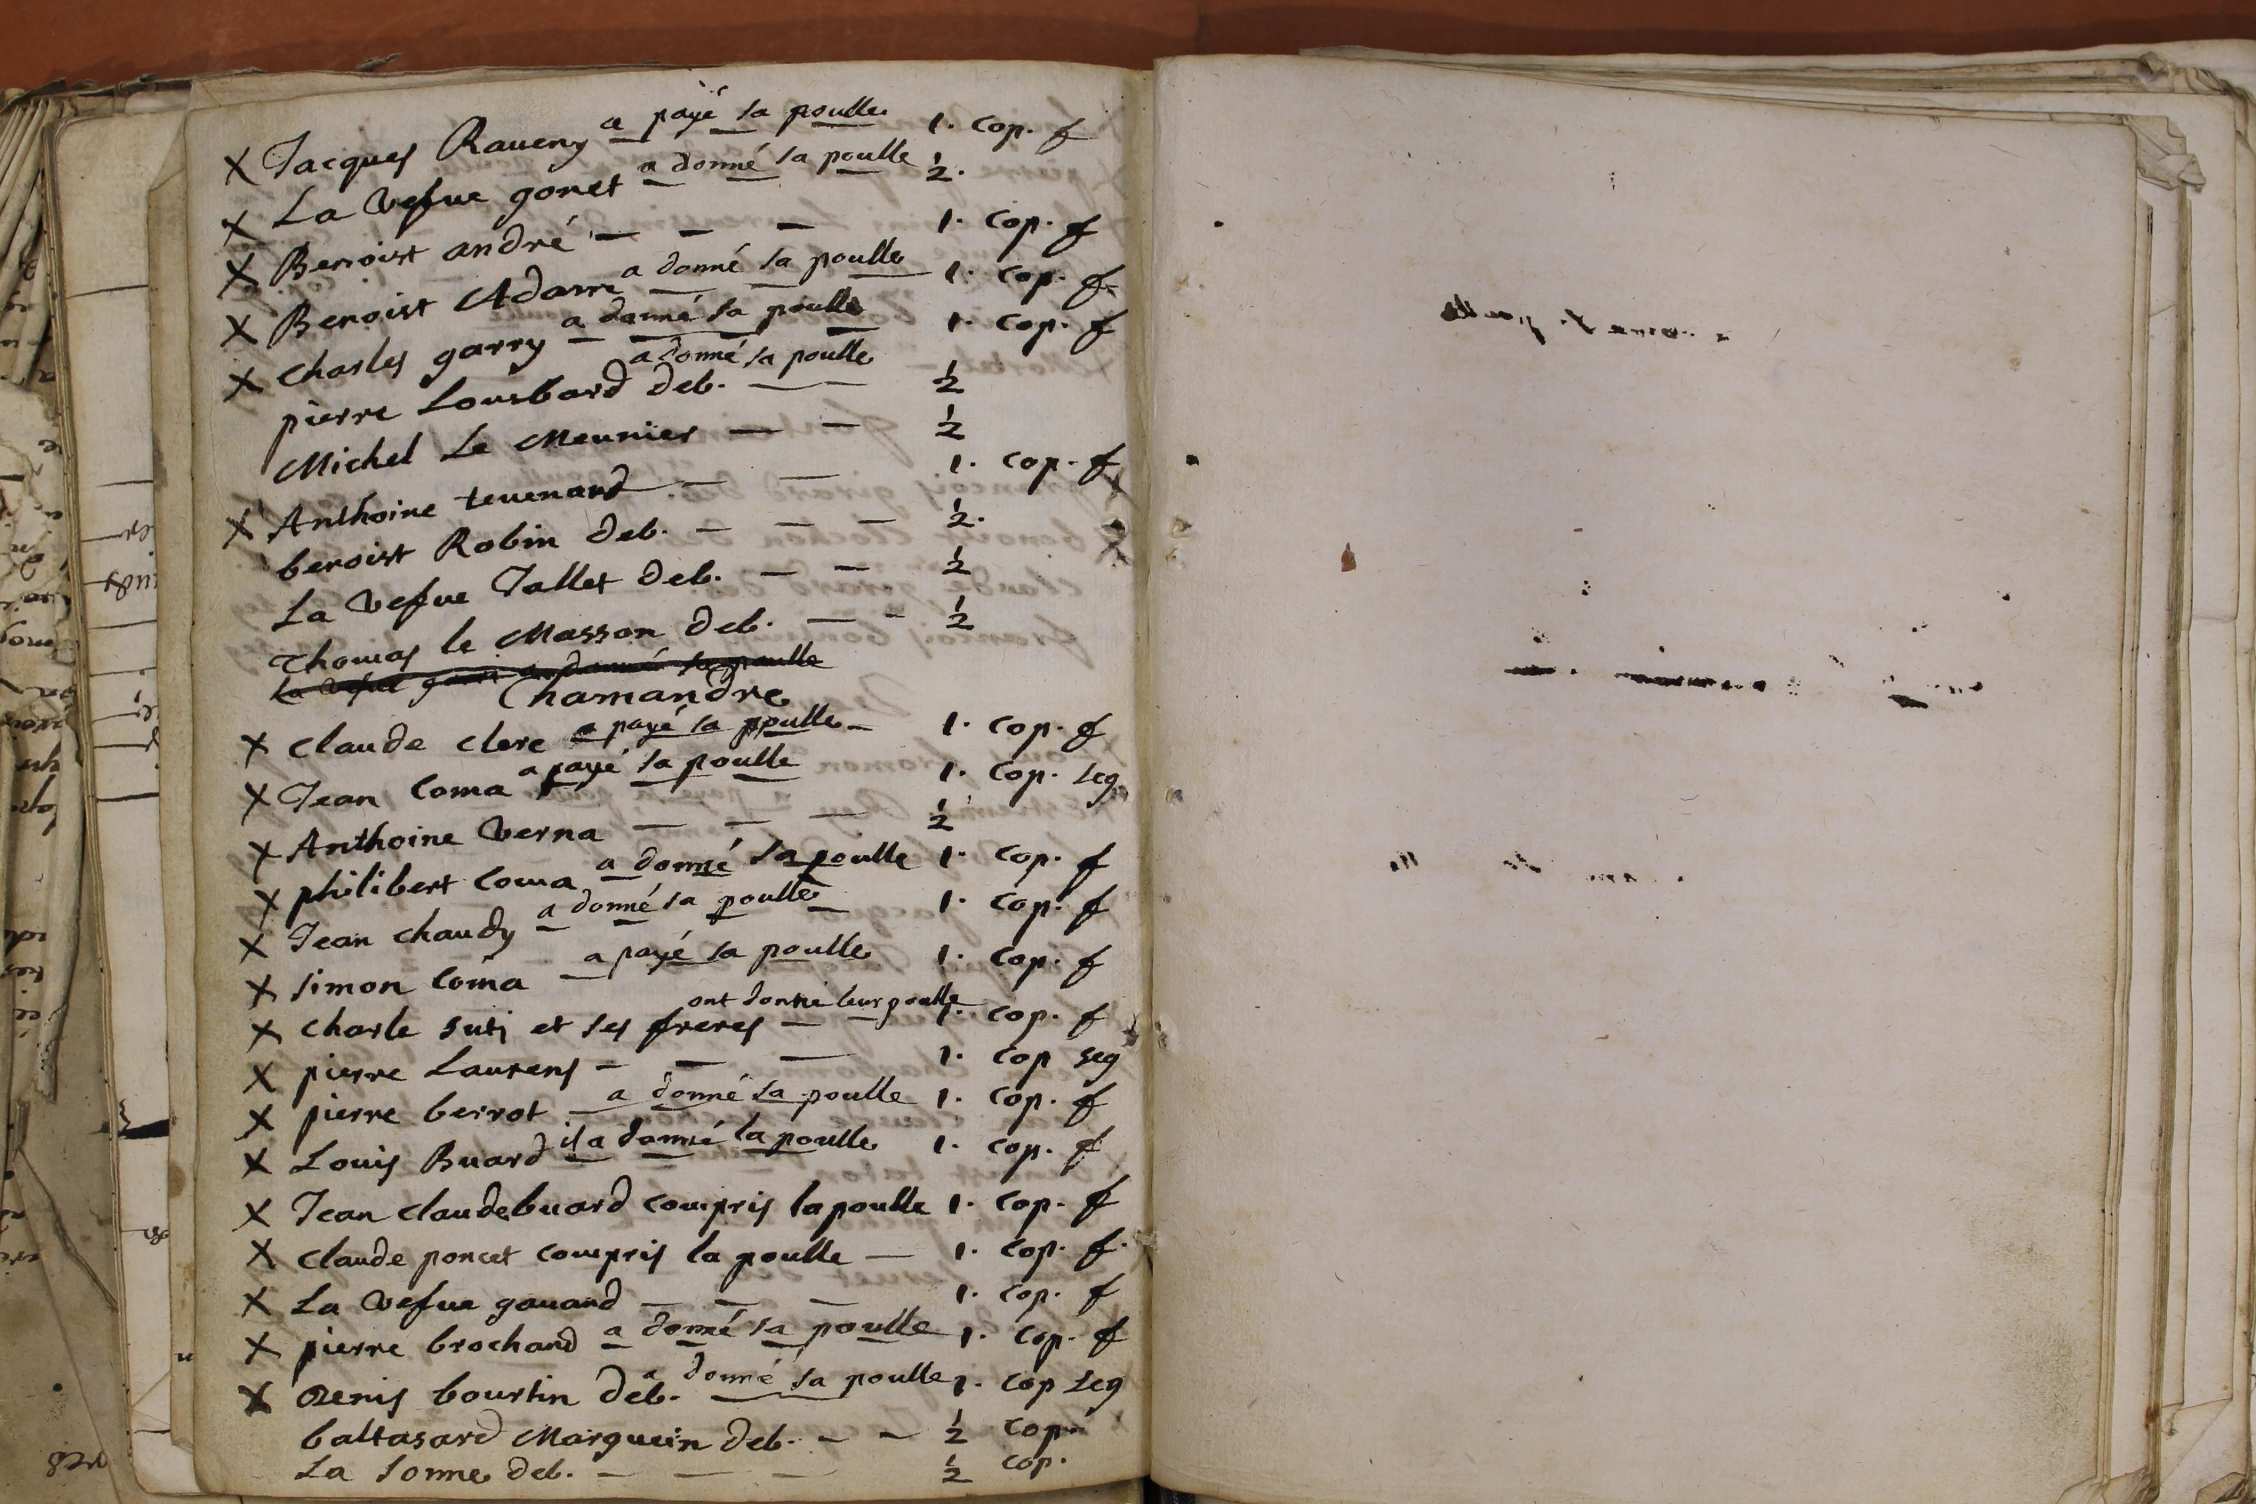 X Jacques Raueny a payé sa poulle 1. Cop. f
X La vefue gonet a donné sa poulle ½.
X Benoist andré — — — 1. Cop. f
X Benoist Adam a donné sa poulle 1. Cop. f
X charles garry a donné sa poulle 1. Cop. f
pierre Lombard deb. a donné sa poulle ½
Michel Le Meunier — — ½
X Anthoine teuenard — — 1. Cop. f
benoist Robin deb. — — — ½.
La vefue Jallet deb. — — ½
Thomas le Masson deb. — — ½
La vefue a donné sa poulle
Chamandre
X claude clerc a payé sa poulle — 1. Cop. f
X Jean Coma a payé sa poulle 1. Cop. seg
X Anthoine verna — — — ½
X philibert Coma a donné sa poulle 1. Cop. f
X Jean chaudy a donné sa poulle 1. Cop. f
X simon Coma a payé sa poulle 1. Cop. f
X charle suti et ses freres — ont donné leur poulle 1. Cop. f
X pierre Laurens — — — 1. Cop seg
X pierre berrot a donné sa poulle 1. Cop. f
X Louis Buard il a donné la poulle 1. Cop. f
X Jean claude buard compris la poulle 1. Cop. f
X claude poncet compris la poulle — 1. Cop. f.
X La vefue gauand — — — 1. Cop. f
X pierre brochand a donné sa poulle 1. Cop. f
X Denis bourtin deb. a donné sa poulle 1. Cop seg
baltasard Marguein deb. — — ½ Cop.
La Sonne deb. — — — ½ Cop.